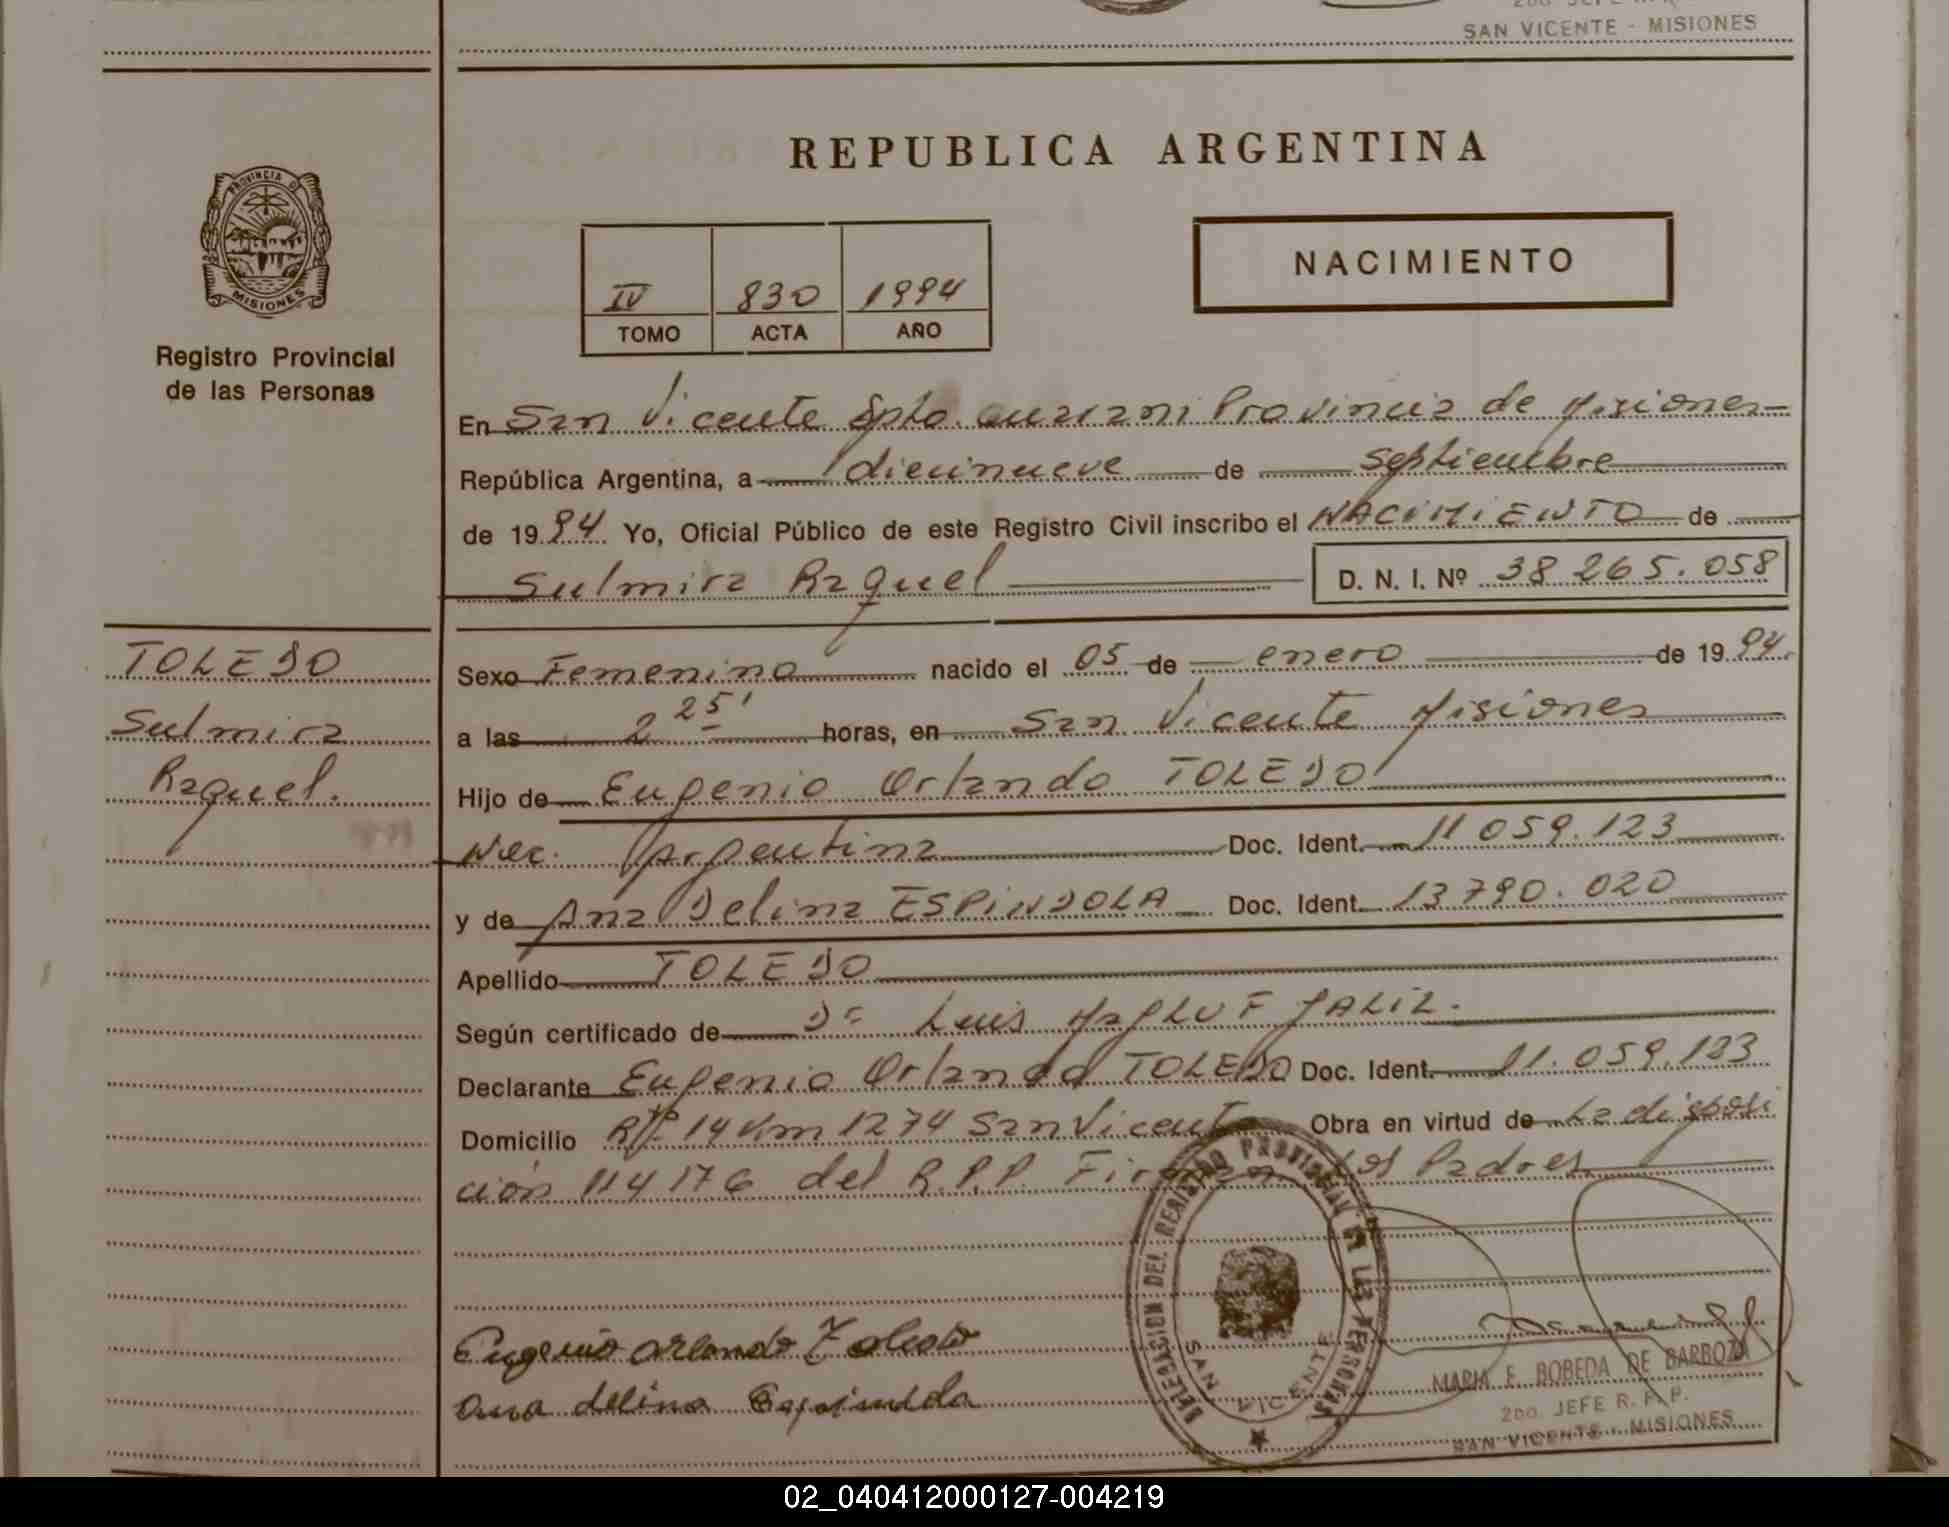 SAN VICENTE - MISIONES
REPUBLICA ARGENTINA
PROVINCIA DE
MISIONES
Registro Provincial
de las Personas
IV 830 1994
TOMO ACTA AÑO
NACIMIENTO
En San Vicente Dpto. Guarani Provincia de Misiones
República Argentina, a diecinueve de septiembre
de 1994 Yo, Oficial Público de este Registro Civil inscribo el NACIMIENTO de
Sulmira Raquel D. N. I. Nº 38 265.058
TOLEDO
Sulmira
Raquel.
Sexo Femenino nacido el 05 de enero de 1994.
a las 2 25' horas, en San Vicente Misiones
Hijo de Eugenio Orlando TOLEDO
Nac. Argentina Doc. Ident. 11 059.123
y de Ana Delina ESPINDOLA Doc. Ident. 13 790.020
Apellido TOLEDO
Según certificado de Dr Luis JALIL.
Declarante Eugenio Orlando TOLEDO Doc. Ident. 11.059.123
Domicilio Rta 14 Km 1274 San Vicente Obra en virtud de La disposi
ción 114 176 del R.P.P. Firman Los Padres
Eugenio Orlando Toledo
Ana delina Espindola
DELEGACION DEL REGISTRO PROVINCIAL DE LAS PERSONAS
SAN VICENTE
MARIA E. BOBEDA DE BARBOZA
2do. JEFE R. P. P.
SAN VICENTE - MISIONES
02_040412000127-004219